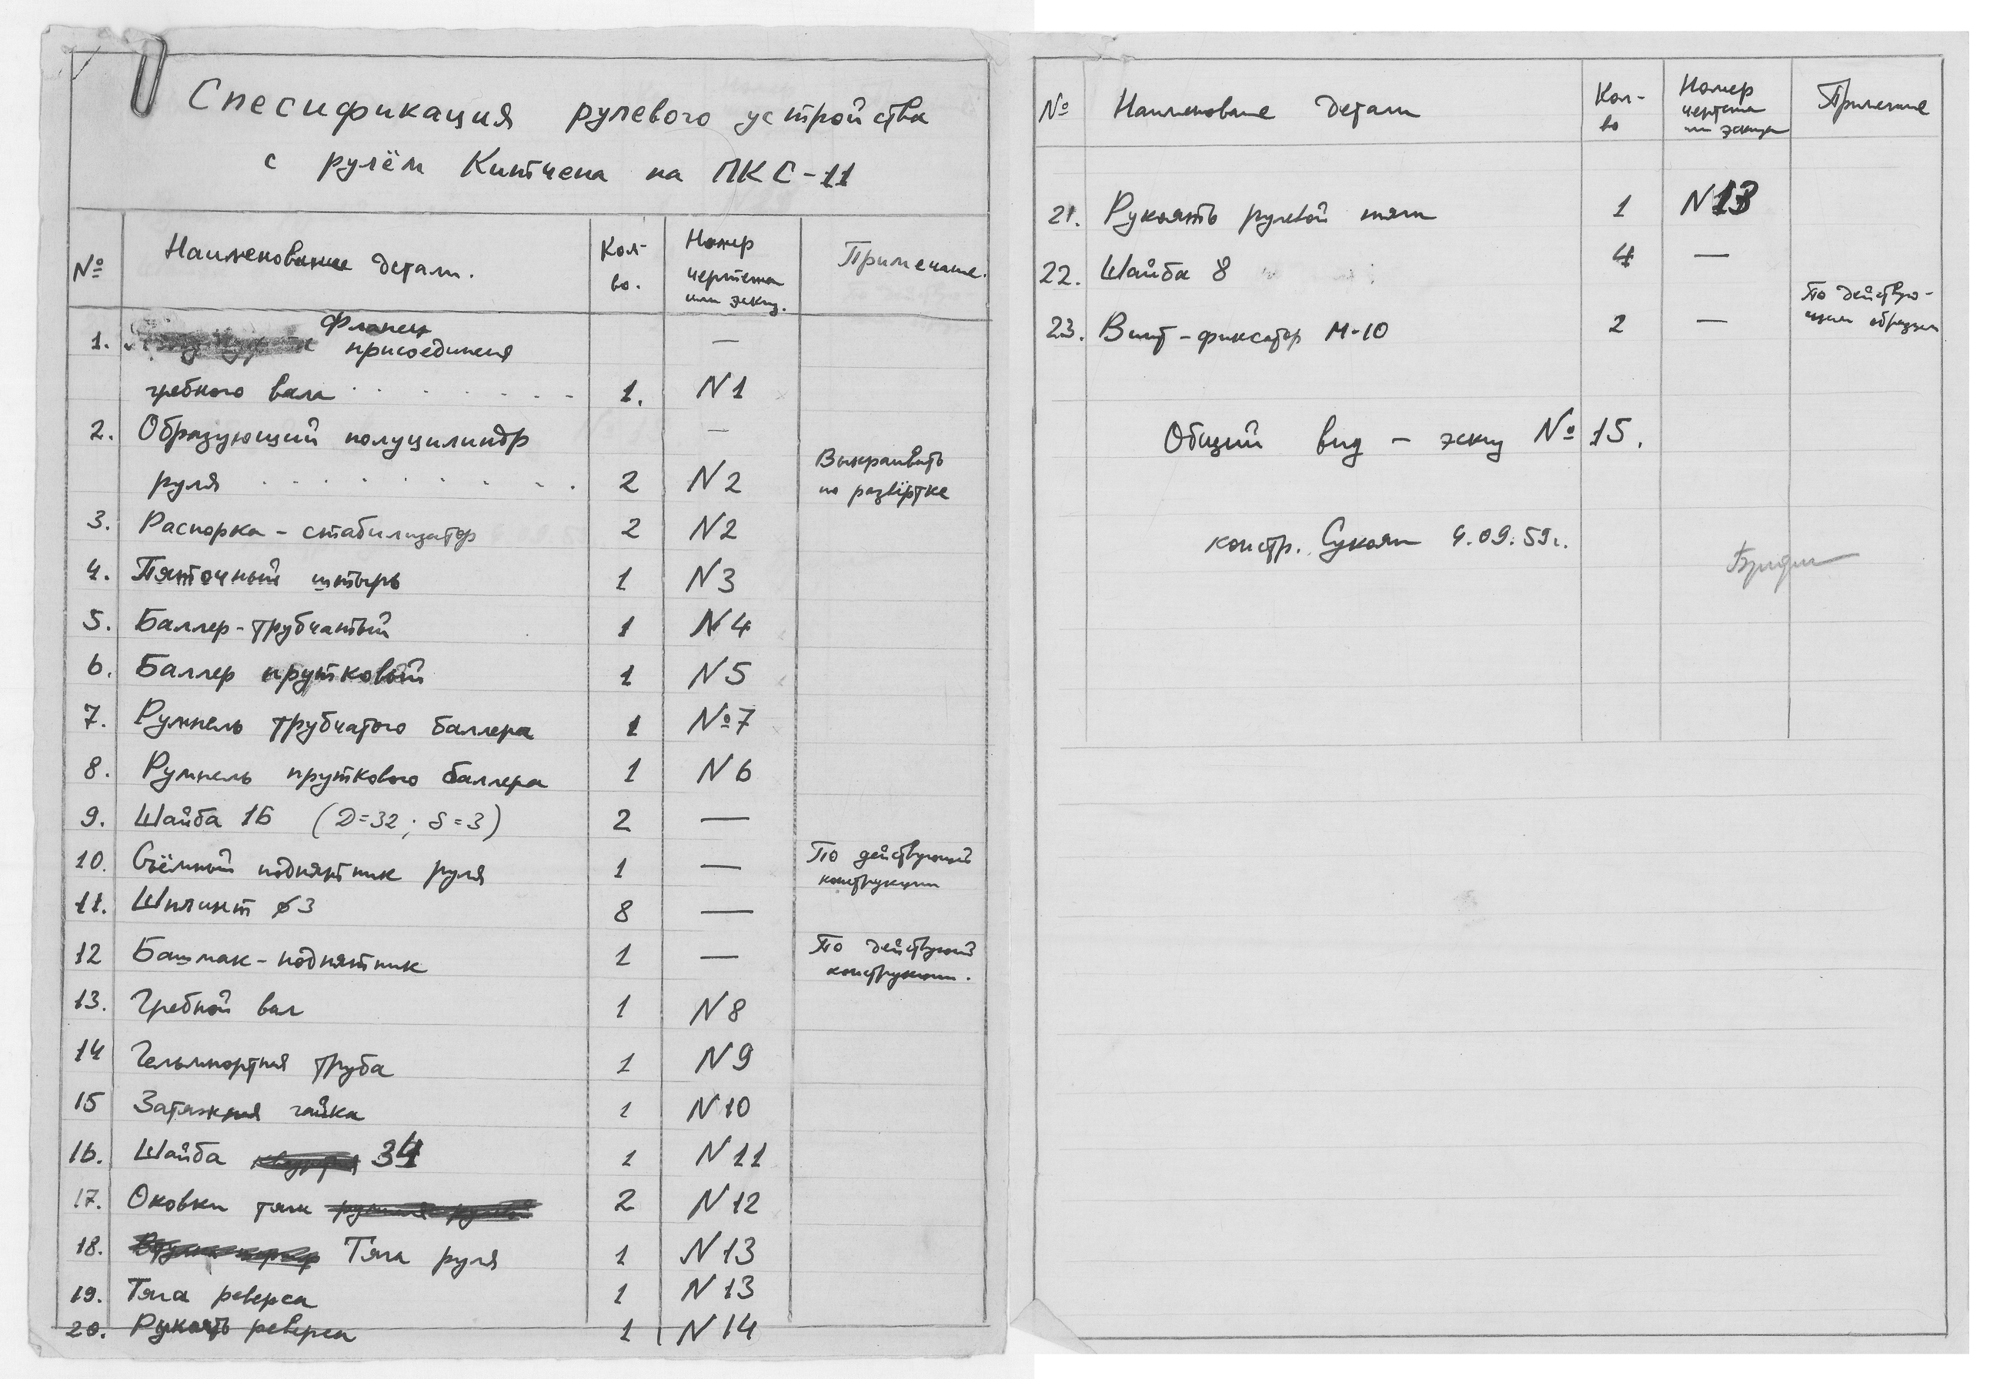 Спесификация рулевого устройства
с рулём Китчена на ПКС-11
№ Наименование детали. Кол-во. Номер чертежа или эскиз. Примечание.
1. Фланец
присоединения —
гребного вала . . . . . . . 1. N1
2. Образующий полуцилиндр —
руля . . . . . . . . . 2 N2 Выкраивать по развёртке
3. Распорка - стабилизатор 2 N2
4. Пяточный штырь 1 N3
5. Баллер-трубчатый 1 N4
6. Баллер прутковый 1 N5
7. Румпель трубчатого баллера 1 №7
8. Румпель пруткового баллера 1 N6
9. Шайба 16 (D=32; S=3) 2 —
10. Съёмный подпятник руля 1 — По действующей конструкции
11. Шплинт ø3 8 —
12 Башмак-подпятник 1 — По действующей конструкции.
13. Гребной вал 1 N8
14 Гельмпортная труба 1 N9
15 Затяжная гайка 1 N10
16. Шайба 34 1 N11
17. Оковки тяги 2 N12
18. Тяга руля 1 N13
19. Тяга реверса 1 N13
20. Рукоять реверса 1 N14
№ Наименование детали Кол-во Номер чертежа или эскиза Примечание
21. Рукоять рулевой тяги 1 N13
22. Шайба 8 4 —
23. Винт-фиксатор М-10 2 — По действующим образцам
Общий вид — эскиз № 15.
констр. Сукоян 4.09.59г.